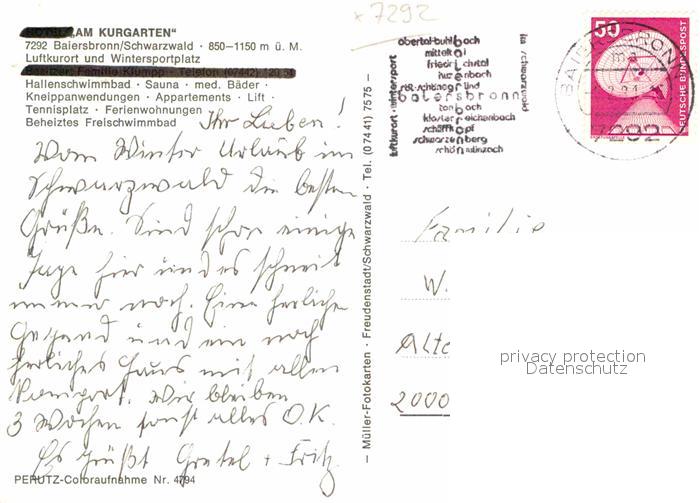 "AM KURGARTEN"
7292 Baiersbronn/Schwarzwald · 850–1150 m ü. M.
Luftkurort und Wintersportplatz
Besitzer: Familie Klumpp Telefon (07442)
Hallenschwimmbad · Sauna · med. Bäder ·
Kneippanwendungen · Appartements · Lift ·
Tennisplatz · Ferienwohnungen ·
Beheiztes Freischwimmbad
Ihr Lieben!
Vom Winter Urlaub im
Schwarzwald die besten
Grüße. Sind schon einige
Tage hier und es schneit
immer noch. Eine herliche
Gegend und ein noch
herliches Haus mit allem
Komport. Wir bleiben
3 Wochen sonst alles O.K.
Es grüßt Gretel + Fritz.
PERUTZ-Coloraufnahme Nr. 4794
– Müller-Fotokarten · Freudenstadt/Schwarzwald · Tel. (07441) 7575 –
x 7292
luftkurort wintersport
obertal-buhlbach
mitteltal
friedrichstal
huzenbach
röt-schönegründ
baiersbronn
tonbach
klosterreichenbach
schwarzenberg
schönmünzach
im schwarzwald
50
DEUTSCHE BUNDESPOST
BAIERSBRONN
7292
Familie
W.
Alte
2000
privacy protection
Datenschutz